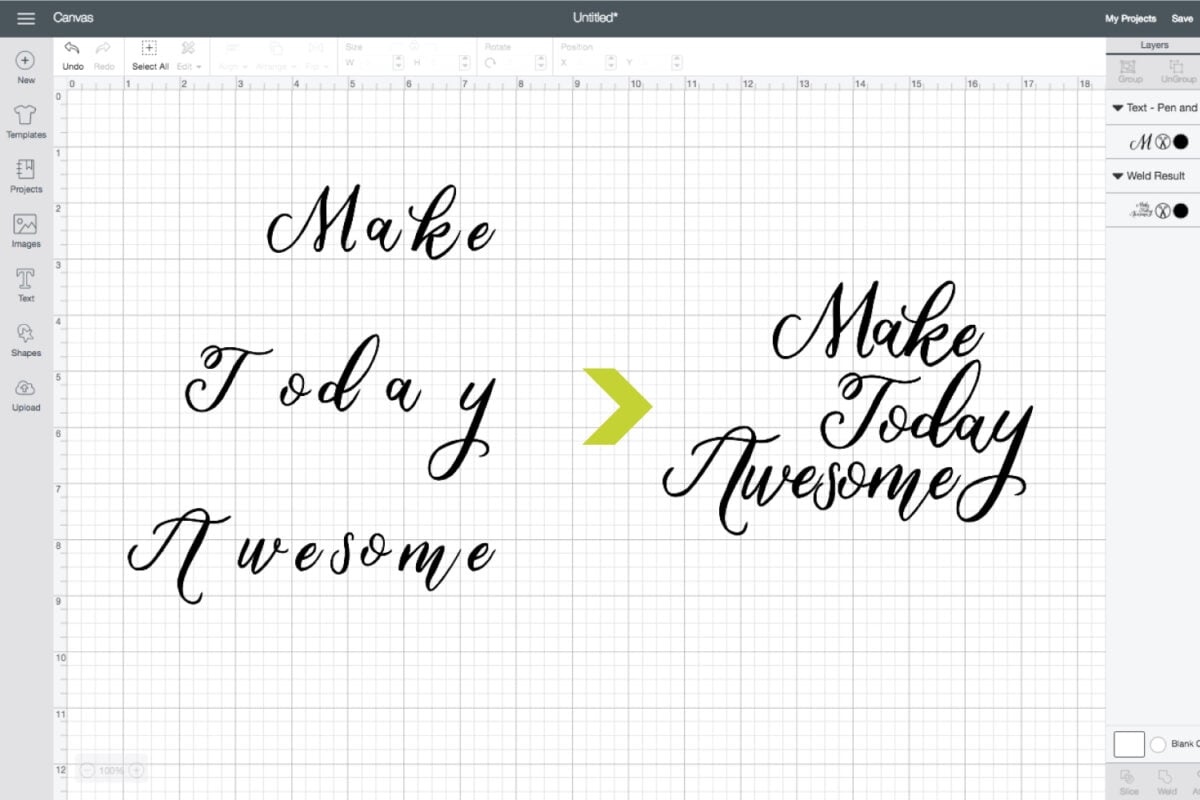 Canvas
Untitled*
My Projects Save
Undo Redo Select All Edit Align Arrange Flip Size W H Rotate Position X Y
Layers
Group UnGroup
0 1 2 3 4 5 6 7 8 9 10 11 12 13 14 15 16 17 18
0
1
2
3
4
5
6
7
8
9
10
11
12
New
Templates
Projects
Images
Text
Shapes
Upload
Make
Today
Awesome
Make
Today
Awesome
Text - Pen and
M
Weld Result
Make
Today
Awesome
100%
Blank C
Slice Weld